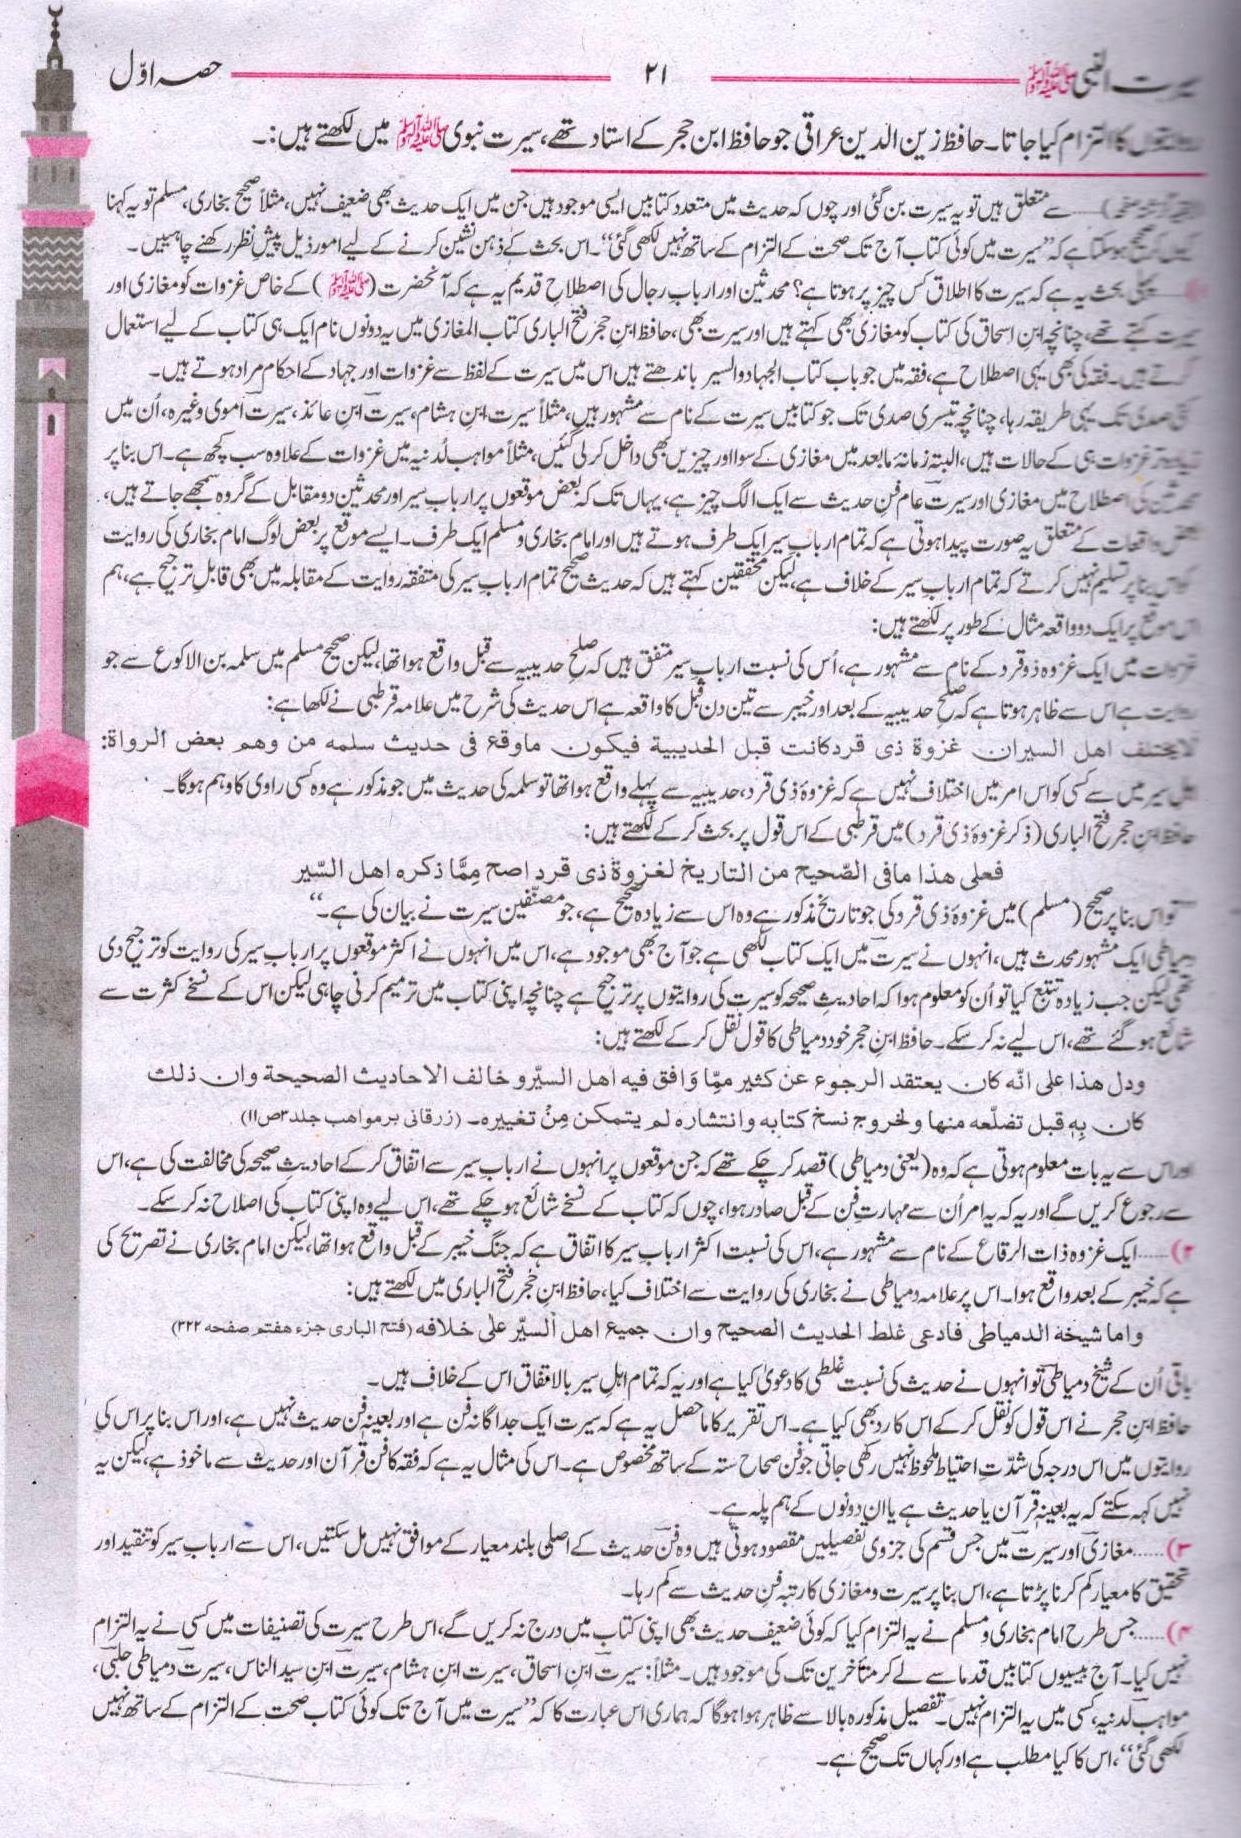 سیرت النبی ﷺ ۲۱ حصہ اوّل
روایتوں کا التزام کیا جاتا۔ حافظ زین الدین عراقی جو حافظ ابن حجر کے استاد تھے، سیرت نبوی ﷺ میں لکھتے ہیں:۔
(بقیہ گزشتہ صفحہ)...... سے متعلق ہیں تو یہ سیرت بن گئی اور چوں کہ حدیث میں متعدد کتابیں ایسی موجود ہیں جن میں ایک حدیث بھی ضعیف نہیں، مثلاً صحیح بخاری، مسلم تو یہ کہنا
کیوں کر صحیح ہو سکتا ہے کہ ”سیرت میں کوئی کتاب آج تک صحت کے التزام کے ساتھ نہیں لکھی گئی“۔ اس بحث کے ذہن نشین کرنے کے لیے امور ذیل پیش نظر رکھنے چاہییں۔
...... پہلی بحث یہ ہے کہ سیرت کا اطلاق کس چیز پر ہوتا ہے؟ محدثین اور ارباب رجال کی اصطلاح قدیم یہ ہے کہ آنحضرت (ﷺ) کے خاص غزوات کو مغازی اور
سیرت کہتے تھے، چنانچہ ابنِ اسحاق کی کتاب کو مغازی بھی کہتے ہیں اور سیرت بھی، حافظ ابنِ حجر فتح الباری کتاب المغازی میں یہ دونوں نام ایک ہی کتاب کے لیے استعمال
کرتے ہیں۔ فقہ کی بھی یہی اصطلاح ہے، فقہ میں جو باب کتاب الجہاد والسیر باندھتے ہیں اس میں سیرت کے لفظ سے غزوات اور جہاد کے احکام مراد ہوتے ہیں۔
کئی صدی تک یہی طریقہ رہا، چنانچہ تیسری صدی تک جو کتابیں سیرت کے نام سے مشہور ہیں، مثلاً سیرت ابنِ ہشام، سیرت ابنِ عائذ، سیرت اموی وغیرہ، اُن میں
زیادہ تر غزوات ہی کے حالات ہیں، البتہ زمانۂ مابعد میں مغازی کے سوا اور چیزیں بھی داخل کر لی گئیں، مثلاً مواہب لُدنیہ میں غزوات کے علاوہ سب کچھ ہے۔ اس بنا پر
محدثین کی اصطلاح میں مغازی اور سیرت عام فنِ حدیث سے ایک الگ چیز ہے، یہاں تک کہ بعض موقعوں پر ارباب سیر اور محدثین دو مقابل کے گروہ سمجھے جاتے ہیں،
بعض واقعات کے متعلق یہ صورت پیدا ہوتی ہے کہ تمام ارباب سیر ایک طرف ہوتے ہیں اور امام بخاری و مسلم ایک طرف۔ ایسے موقع پر بعض لوگ امام بخاری کی روایت
کو اس بنا پر تسلیم نہیں کرتے کہ تمام ارباب سیر کے خلاف ہے، لیکن محققین کہتے ہیں کہ حدیث صحیح تمام اربابِ سیر کی متفقہ روایت کے مقابلہ میں بھی قابلِ ترجیح ہے، ہم
اس موقع پر ایک دو واقعہ مثال کے طور پر لکھتے ہیں:
غزوات میں ایک غزوہ ذوقرد کے نام سے مشہور ہے، اُس کی نسبت اربابِ سیر متفق ہیں کہ صلح حدیبیہ سے قبل واقع ہوا تھا، لیکن صحیح مسلم میں سلمہ بن الاکوع سے جو
روایت ہے اس سے ظاہر ہوتا ہے کہ صلح حدیبیہ کے بعد اور خیبر سے تین دن قبل کا واقعہ ہے اس حدیث کی شرح میں علامہ قرطبی نے لکھا ہے:
لایختلف اھل السیران غزوة ذی قردکانت قبل الحدیبیة فیکون ماوقع فی حدیث سلمه من وھم بعض الرواة:
اہل سیر میں سے کسی کو اس امر میں اختلاف نہیں ہے کہ غزوۂ ذی قرد، حدیبیہ سے پہلے واقع ہوا تھا تو سلمہ کی حدیث میں جو مذکور ہے وہ کسی راوی کا وہم ہوگا۔
حافظ ابنِ حجر فتح الباری (ذکر غزوۂ ذی قرد) میں قرطبی کے اس قول پر بحث کر کے لکھتے ہیں:
فعلی ھذا مافی الصّحیح من التاریخ لغزوة ذی قرد اصح مِمَّا ذکرہ اھل السِّیر
”تو اس بنا پر صحیح (مسلم) میں غزوۂ ذی قرد کی جو تاریخ مذکور ہے وہ اس سے زیادہ صحیح ہے، جو مصنّفین سیرت نے بیان کی ہے۔“
دمیاطی ایک مشہور محدث ہیں، انہوں نے سیرت میں ایک کتاب لکھی ہے جو آج بھی موجود ہے، اس میں انہوں نے اکثر موقعوں پر ارباب سیر کی روایت کو ترجیح دی
تھی لیکن جب زیادہ تتبع کیا تو اُن کو معلوم ہوا کہ احادیثِ صحیحہ کو سیرت کی روایتوں پر ترجیح ہے چنانچہ اپنی کتاب میں ترمیم کرنی چاہی لیکن اس کے نسخے کثرت سے
شائع ہو گئے تھے، اس لیے نہ کر سکے۔ حافظ ابنِ حجر خود دمیاطی کا قول نقل کر کے لکھتے ہیں:
ودل ھذا علی انّه کان یعتقد الرجوع عن کثیر ممِّا وَافق فیه اھل السیّر و خالف الاحادیث الصحیحة وان ذلک
کان بِهٖ قبل تضلّعه منھا ولخروج نسخ کتابه وانتشارہ لم یتمکن مِنْ تغییرہ۔ (زرقانی برمواھب جلد ۳ ص ۱۱)
اور اس سے یہ بات معلوم ہوتی ہے کہ وہ (یعنی دمیاطی) قصد کر چکے تھے کہ جن موقعوں پر انہوں نے ارباب سیر سے اتفاق کر کے احادیثِ صحیحہ کی مخالفت کی ہے، اس
سے رجوع کریں گے اور یہ کہ یہ امر اُن سے مہارتِ فن کے قبل صادر ہوا، چوں کہ کتاب کے نسخے شائع ہو چکے تھے، اس لیے وہ اپنی کتاب کی اصلاح نہ کر سکے۔
۲)...... ایک غزوہ ذات الرقاع کے نام سے مشہور ہے، اس کی نسبت اکثر ارباب سیر کا اتفاق ہے کہ جنگ خیبر کے قبل واقع ہوا تھا، لیکن امام بخاری نے تصریح کی
ہے کہ خیبر کے بعد واقع ہوا۔ اس پر علامہ دمیاطی نے بخاری کی روایت سے اختلاف کیا، حافظ ابنِ حجر فتح الباری میں لکھتے ہیں:
واما شیخه الدمیاطی فادعی غلط الحدیث الصحیح وان جمیع اھل السیّر علٰی خلافه (فتح الباری جزء ھفتم صفحه ۳۲۲)
باقی اُن کے شیخ دمیاطی تو انہوں نے حدیث کی نسبت غلطی کا دعویٰ کیا ہے اور یہ کہ تمام اہلِ سیر بالاتفاق اس کے خلاف ہیں۔
حافظ ابنِ حجر نے اس قول کو نقل کر کے اس کا رد بھی کیا ہے۔ اس تقریر کا ماحصل یہ ہے کہ سیرت ایک جداگانہ فن ہے اور بعینہٖ فن حدیث نہیں ہے، اور اس بنا پر اس کی
روایتوں میں اس درجہ کی شدّتِ احتیاط ملحوظ نہیں رکھی جاتی جو فن صحاح ستہ کے ساتھ مخصوص ہے۔ اس کی مثال یہ ہے کہ فقہ کا فن قرآن اور حدیث سے ماخوذ ہے، لیکن یہ
نہیں کہہ سکتے کہ یہ بعینہٖ قرآن یا حدیث ہے یا ان دونوں کے ہم پلہ ہے۔
۳)...... مغازی اور سیرت میں جس قسم کی جزوی تفصیلیں مقصود ہوتی ہیں وہ فن حدیث کے اصلی بلند معیار کے موافق نہیں مل سکتیں، اس سے ارباب سیر کو تنقید اور
تحقیق کا معیار کم کرنا پڑتا ہے، اس بنا پر سیرت و مغازی کا رتبہ فنِ حدیث سے کم رہا۔
۴)...... جس طرح امام بخاری و مسلم نے یہ التزام کیا کہ کوئی ضعیف حدیث بھی اپنی کتاب میں درج نہ کریں گے، اس طرح سیرت کی تصنیفات میں کسی نے یہ التزام
نہیں کیا۔ آج بیسیوں کتابیں قدما سے لے کر متاخرین تک کی موجود ہیں۔ مثلاً: سیرت ابنِ اسحاق، سیرت ابنِ ہشام، سیرت ابنِ سید الناس، سیرت دمیاطی، حلبی،
مواہب لدنیہ، کسی میں یہ التزام نہیں۔ تفصیل مذکورہ بالا سے ظاہر ہوا ہوگا کہ ہماری اس عبارت کا کہ ”سیرت میں آج تک کوئی کتاب صحت کے التزام کے ساتھ نہیں
لکھی گئی“، اس کا کیا مطلب ہے اور کہاں تک صحیح ہے۔